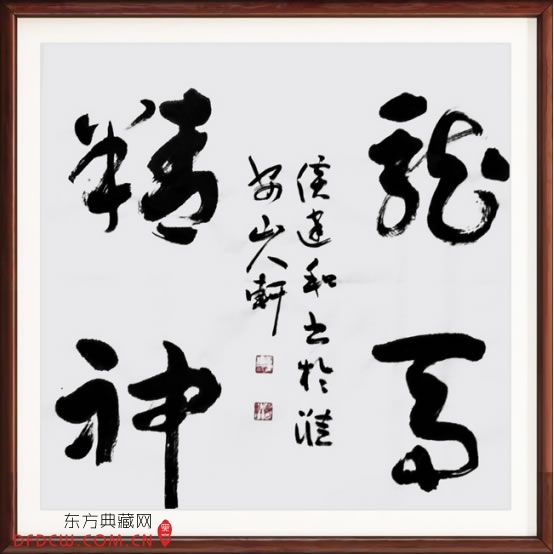 龍馬
侯建和书於淮
安山人軒
精神
东方典藏网
DFDCW.COM.CN